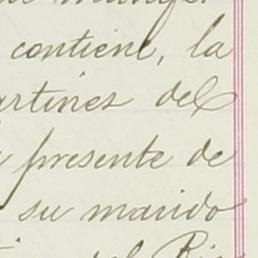 contiene, la
artines del
presente de
su marido
del Rio